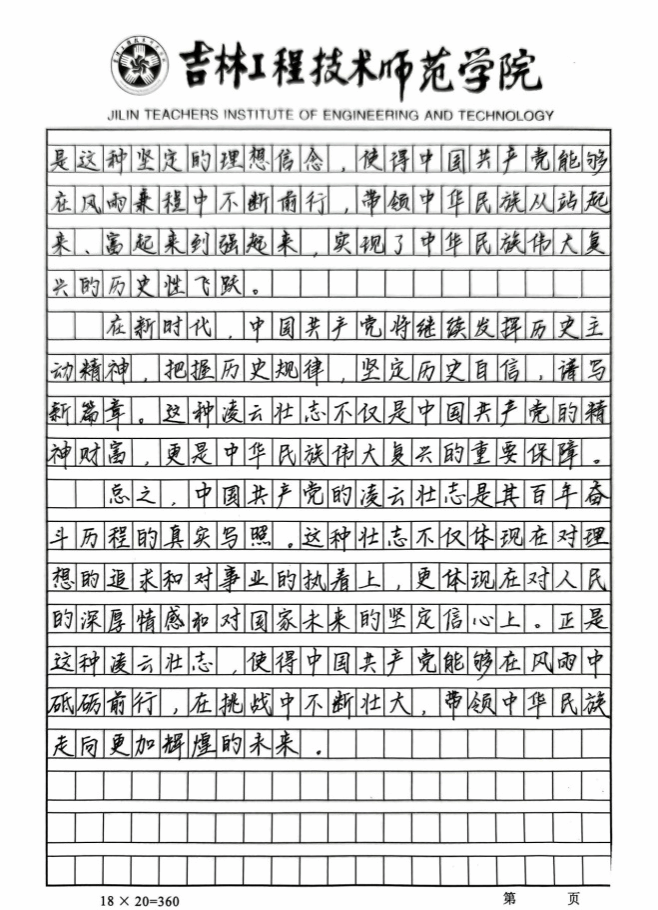 吉林工程技术师范学院
JILIN TEACHERS INSTITUTE OF ENGINEERING AND TECHNOLOGY
是这种坚定的理想信念，使得中国共产党能够
在风雨兼程中不断前行，带领中华民族从站起
来、富起来到强起来，实现了中华民族伟大复
兴的历史性飞跃。
在新时代，中国共产党将继续发挥历史主
动精神，把握历史规律，坚定历史自信，谱写
新篇章。这种凌云壮志不仅是中国共产党的精
神财富，更是中华民族伟大复兴的重要保障。
总之，中国共产党的凌云壮志是其百年奋
斗历程的真实写照。这种壮志不仅体现在对理
想的追求和对事业的执着上，更体现在对人民
的深厚情感和对国家未来的坚定信心上。正是
这种凌云壮志，使得中国共产党能够在风雨中
砥砺前行，在挑战中不断壮大，带领中华民族
走向更加辉煌的未来。
18 × 20=360
第 页